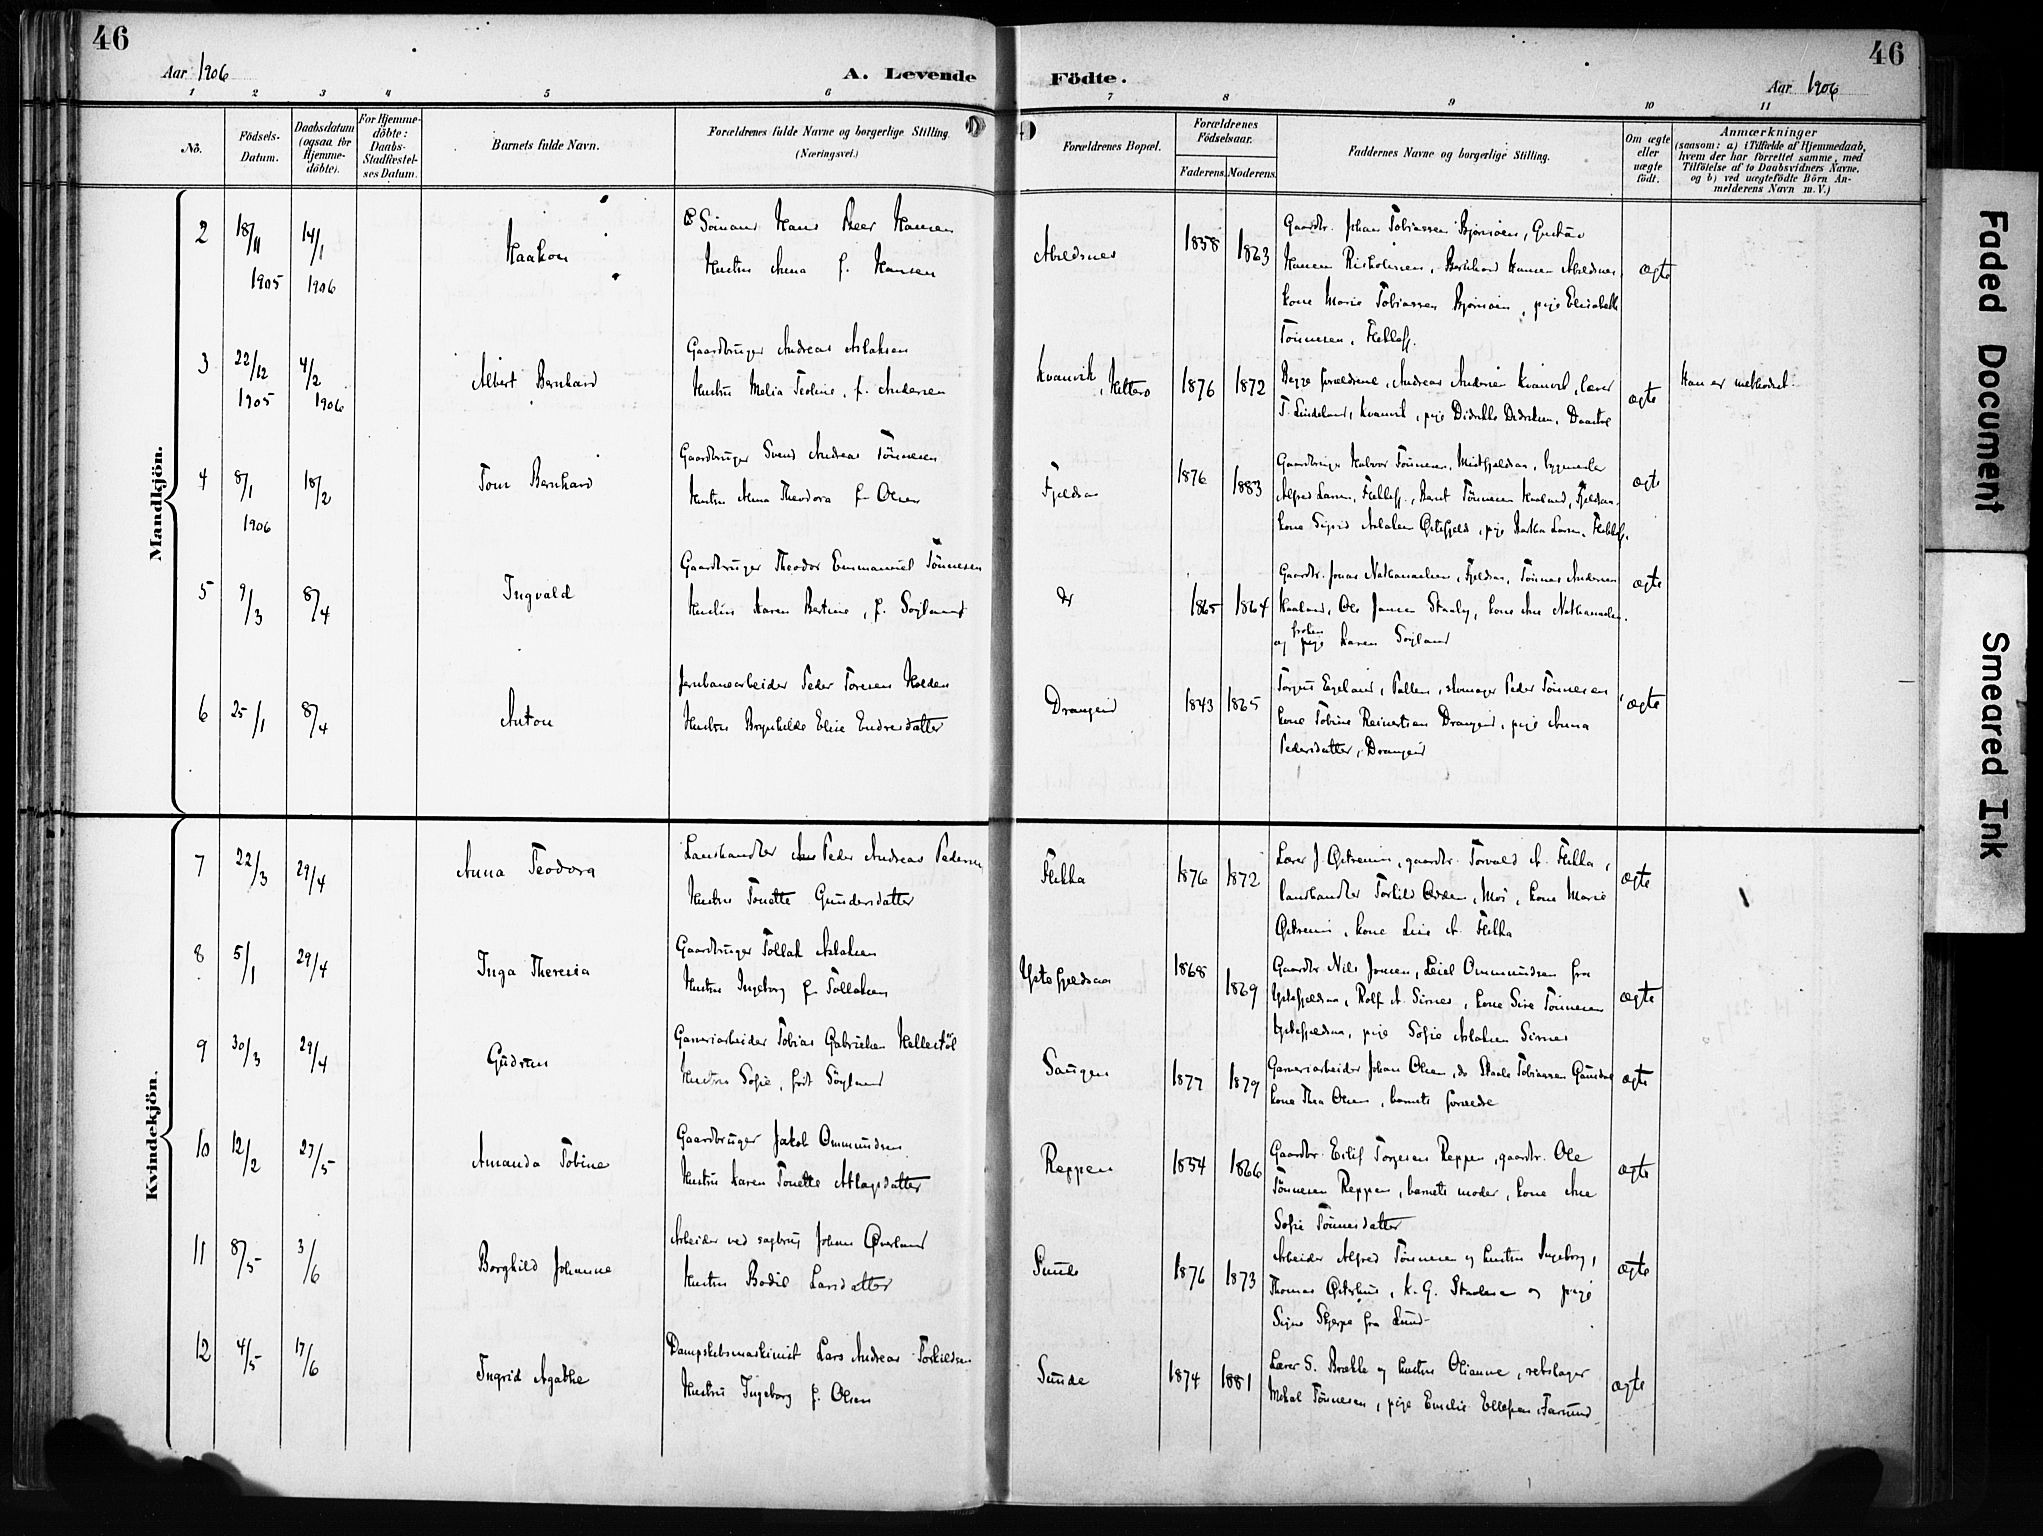 46
46
Aar 1906
A. Levende
Födte.
Aar 1906
1 2 3 4 5 6 7 8 9 10 11
No.
Födsels-Datum.
Daabsdatum (ogsaa for Hjemmedöbte).
For Hjemmedöbte: Daabs-Stadfæstelses Datum.
Barnets fulde Navn.
Forældrenes fulde Navne og borgerlige Stilling. (Næringsvei.)
Forældrenes Bopæl.
Forældrenes Födselsaar.
Faderens. Moderens.
Faddernes Navne og borgerlige Stilling.
Om ægte eller uægte födt.
Anmærkninger
(saasom: a) i Tilfælde af Hjemmedaab,
hvem der har forrettet samme, med
Tilföielse af to Daabsvidners Navne.
og b) ved uægtefödte Börn An-
melderens Navn m. V.)
Mandkjön.
2 18/11 1905 14/1 1906 Haakon
Hans Hansen
Hustru Anna f. Hansen
Abelsnes 1858 1863
Gaardbr. Johan Tobiassen Bjørnøen, Gustav
Hansen, Bernhard Hansen Abelsnes,
kone Marie Tobiassen Bjørnøen, pige Elisabeth
Tönnesen, Flekkefj.
ægte
3 22/12 1905 4/2 1906 Albert Bernhard
Gaardbruger Andreas Aslaksen
Hustru Melia Teoline, f. Andersen
Kvanvik, Hitterø 1876 1872
Begge forældrene, Andreas Andersen Kvanvik, lærer
T. Lindeland, Kvanvik, pige Didrikke Didriksen,
ægte
Han er methodist
4 8/1 1906 18/2 Tom Bernhard
Gaardbruger Svend Andreas Tönnesen
Hustru Anna Theodora f. Olsen
Fjeldsaa 1876 1883
Gaardbruger Halvor Tönnesen, Midtfjeldsaa,
Alfred Larsen, Flekkefj., Bernt Tönnesen Haaland, Fjeldsaa,
kone Sigrid Aslaksen, pige Larsen, Flekkefj.
ægte
5 9/3 8/4 Ingvald
Gaardbruger Theodor Emmanuel Tönnesen
Hustru Karen Bertine, f. Søyland
do 1865 1864
Gaardbr. Jonas Nathanaelsen, Fjeldsaa, Tönnes Andersen
Haaland, Ole Jansen, kone Ane Nathanaelsen
og frøken pige Karen Søyland
ægte
6 25/1 8/4 Anton
Jernbanearbeider Peder Toresen Holden
Hustru Brynhilde Elise Endresdatter
Drangeid 1843 1865
Torgeus Egeland, skomager Peder Tönnesen
kone Tobine Reinertsen Drangeid, pige Anna
Pedersdatter, Drangeid
ægte
Kvindekjön.
7 22/3 29/4 Anna Teodora
Landhandler Peder Andreas Pedersen
Hustru Tonette Gundersdatter
Flikka 1876 1872
Lærer J. Østrem, gaardbr. Torvald A. Flikka,
landhandler Torkild Osen, Moi, kone Marie
Østrem, kone Lise A. Flikka
ægte
8 5/1 29/4 Inga Theresia
Gaardbruger Tollak Aslaksen
Hustru Ingeborg f. Tollaksen
Ystefjeldsaa 1868 1869
Gaardbr. Nils Jonsen, Ommundsen fra
Ystefjeldsaa, Rolf A. Sirnes, kone Sire Tönnesen
Ystefjeldsaa, pige Sofie Aslaksen Sirnes
ægte
9 30/3 29/4 Gudrun
Garveriarbeider Tobias Gabrielsen Hellestöl
Hustru Sofie, født Söyland
Saugen 1877 1879
Garveriarbeider Johan Olsen, do Tobiassen
kone Thea Olsen, barnets forældre
ægte
10 12/2 27/5 Amanda Tobine
Gaardbruger Jakob Ommundsen
Hustru Karen Tonette Atlagsdatter
Reppen 1854 1866
Gaardbr. Eilif Torgesen Reppen, gaardbr. Ole
Tönnesen Reppen, barnets moder, kone Ane
Sofie Tönnesdatter
ægte
11 8/5 3/6 Borghild Johanne
Arbeider ved sagbrug Johan Øverland
Hustru Bodil Larsdatter
Sunde 1876 1873
Arbeider Alfred Tönnesen og hustru Ingeborg,
Thomas Østerhus, K. G. og pige
Signe Skjerpe fra Lund
ægte
12 4/5 17/6 Ingrid Agathe
Dampskibsmaskinist Lars Andreas Torkildsen
Hustru Ingeborg f. Olsen
Sunde 1874 1881
Lærer S. Brække og hustru Olianne, rebslager
Mikal Tönnesen, pige Emilie Ellefsen Farsund
ægte
Faded Document
Smeared Ink